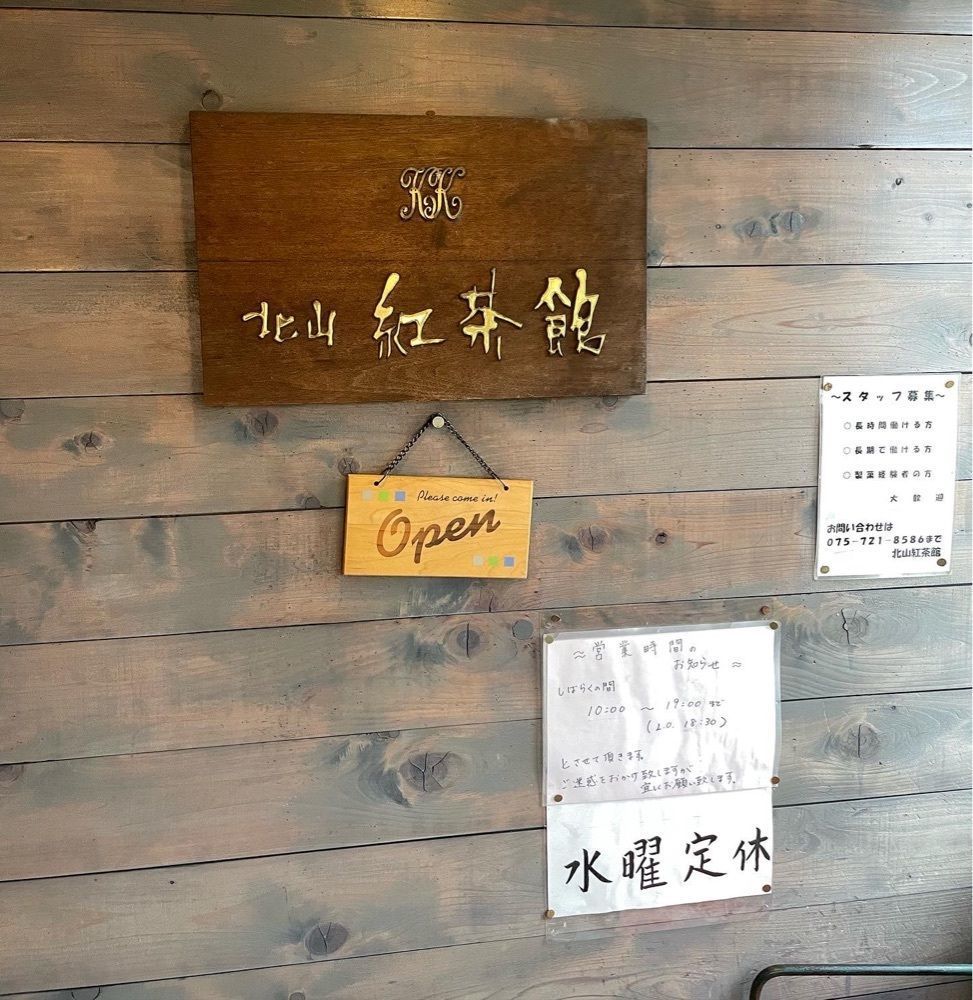 KK
北山 紅茶館
Please come in!
Open
～スタッフ募集～
○長時間働ける方
○長期で働ける方
○製菓経験者の方
大歓迎
お問い合わせは
075-721-8586まで
北山紅茶館
～営業時間の
お知らせ～
しばらくの間
10:00 ～ 19:00まで
(L.O. 18:30)
とさせて頂きます。
ご迷惑をおかけ致しますが
宜しくお願い致します。
水曜定休